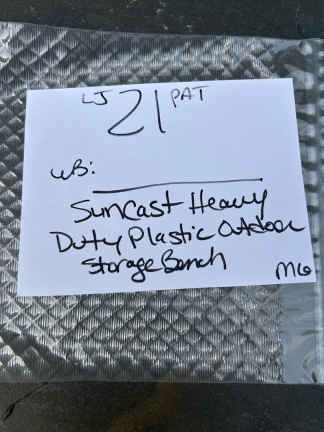 LJ 21 PAT
WB:
SunCast Heavy
Duty Plastic Outdoor
Storage Bench
MG